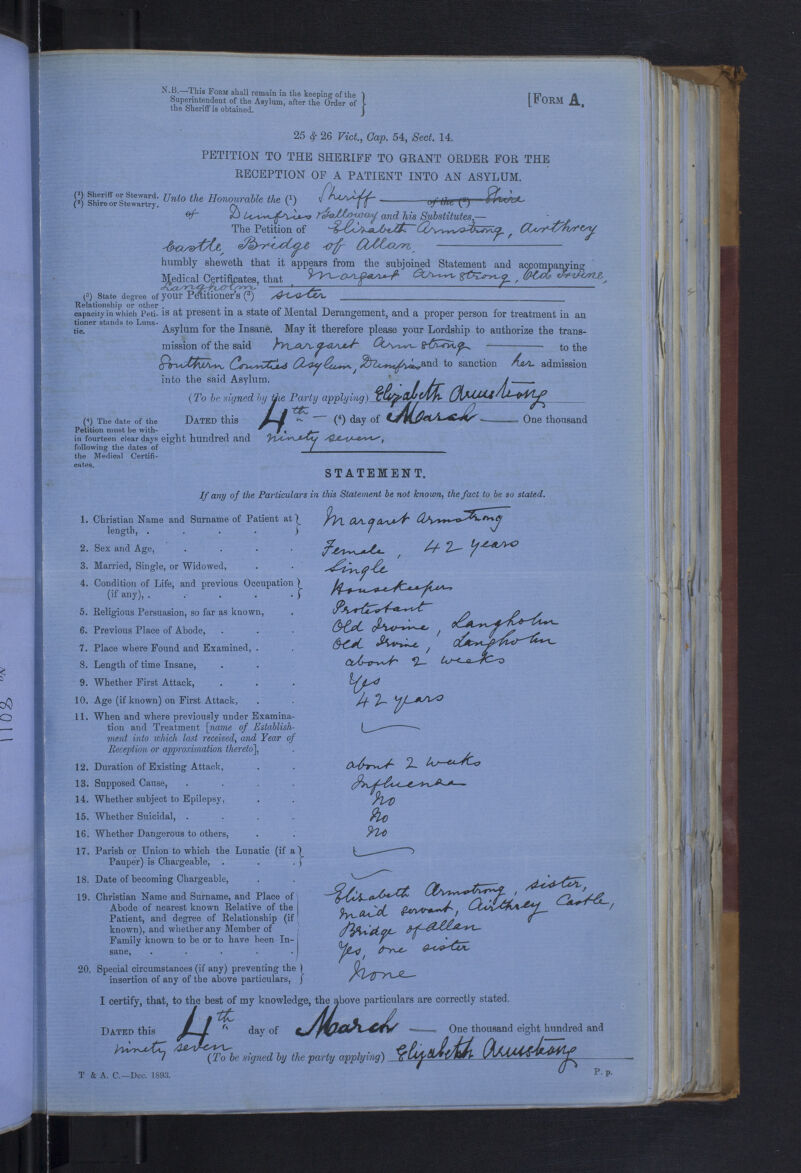 N.B.—This Form shall remain in the keeping of the
Superintendent of the Asylum, after the Order of
the Sheriff is obtained.
[Form A.
25 & 26 Vict., Cap. 54, Sect. 14.
PETITION TO THE SHERIFF TO GRANT ORDER FOR THE
RECEPTION OF A PATIENT INTO AN ASYLUM.
(¹) Sheriff or Steward.
(²) Shire or Stewartry.
Unto the Honourable the (¹) Sheriff — of the (²) Shire
of Dumfries & Galloway and his Substitutes,—
The Petition of Elizabeth Armstrong, Airthrey
Castle, Bridge of Allan.
humbly sheweth that it appears from the subjoined Statement and accompanying
Medical Certificates, that Margaret Armstrong, Old Irvine,
Langholm
(³) State degree of
Relationship or other
capacity in which Peti-
tioner stands to Luna-
tic.
your Petitioner's (³) sister
is at present in a state of Mental Derangement, and a proper person for treatment in an
Asylum for the Insane. May it therefore please your Lordship to authorize the trans-
mission of the said Margaret Armstrong — to the
Southern Counties Asylum, Dumfries and to sanction her admission
into the said Asylum.
(To be signed by the Party applying) Elizabeth Armstrong
(⁴) The date of the
Petition must be with-
in fourteen clear days
following the dates of
the Medical Certifi-
cates.
Dated this 4th — (⁴) day of March — One thousand
eight hundred and ninety seven.
STATEMENT.
If any of the Particulars in this Statement be not known, the fact to be so stated.
1. Christian Name and Surname of Patient at
length, . . . . . Margaret Armstrong
2. Sex and Age, . . . . Female, 42 years
3. Married, Single, or Widowed, . . Single
4. Condition of Life, and previous Occupation
(if any), . . . . . Housekeeper
5. Religious Persuasion, so far as known, . Protestant
6. Previous Place of Abode, . . . Old Irvine, Langholm
7. Place where Found and Examined, . . Old Irvine, Langholm
8. Length of time Insane, . . about 2 weeks
9. Whether First Attack, . . . Yes
10. Age (if known) on First Attack, . . 42 years
11. When and where previously under Examina-
tion and Treatment [name of Establish-
ment into which last received, and Year of
Reception or approximation thereto], . —
12. Duration of Existing Attack, . . about 2 weeks
13. Supposed Cause, . . . . Influenza
14. Whether subject to Epilepsy, . . No
15. Whether Suicidal, . . . . No
16. Whether Dangerous to others, . . No
17. Parish or Union to which the Lunatic (if a
Pauper) is Chargeable, . . . . —
18. Date of becoming Chargeable, . . —
19. Christian Name and Surname, and Place of
Abode of nearest known Relative of the
Patient, and degree of Relationship (if
known), and whether any Member of
Family known to be or to have been In-
sane, . . . . . .
Elizabeth Armstrong, sister,
maid servant, Airthrey Castle,
Bridge of Allan
Yes, one sister
20. Special circumstances (if any) preventing the
insertion of any of the above particulars, None
I certify, that, to the best of my knowledge, the above particulars are correctly stated.
Dated this 4th day of March — One thousand eight hundred and
ninety seven
(To be signed by the party applying) Elizabeth Armstrong
T & A. C.—Dec. 1893.
P. p.